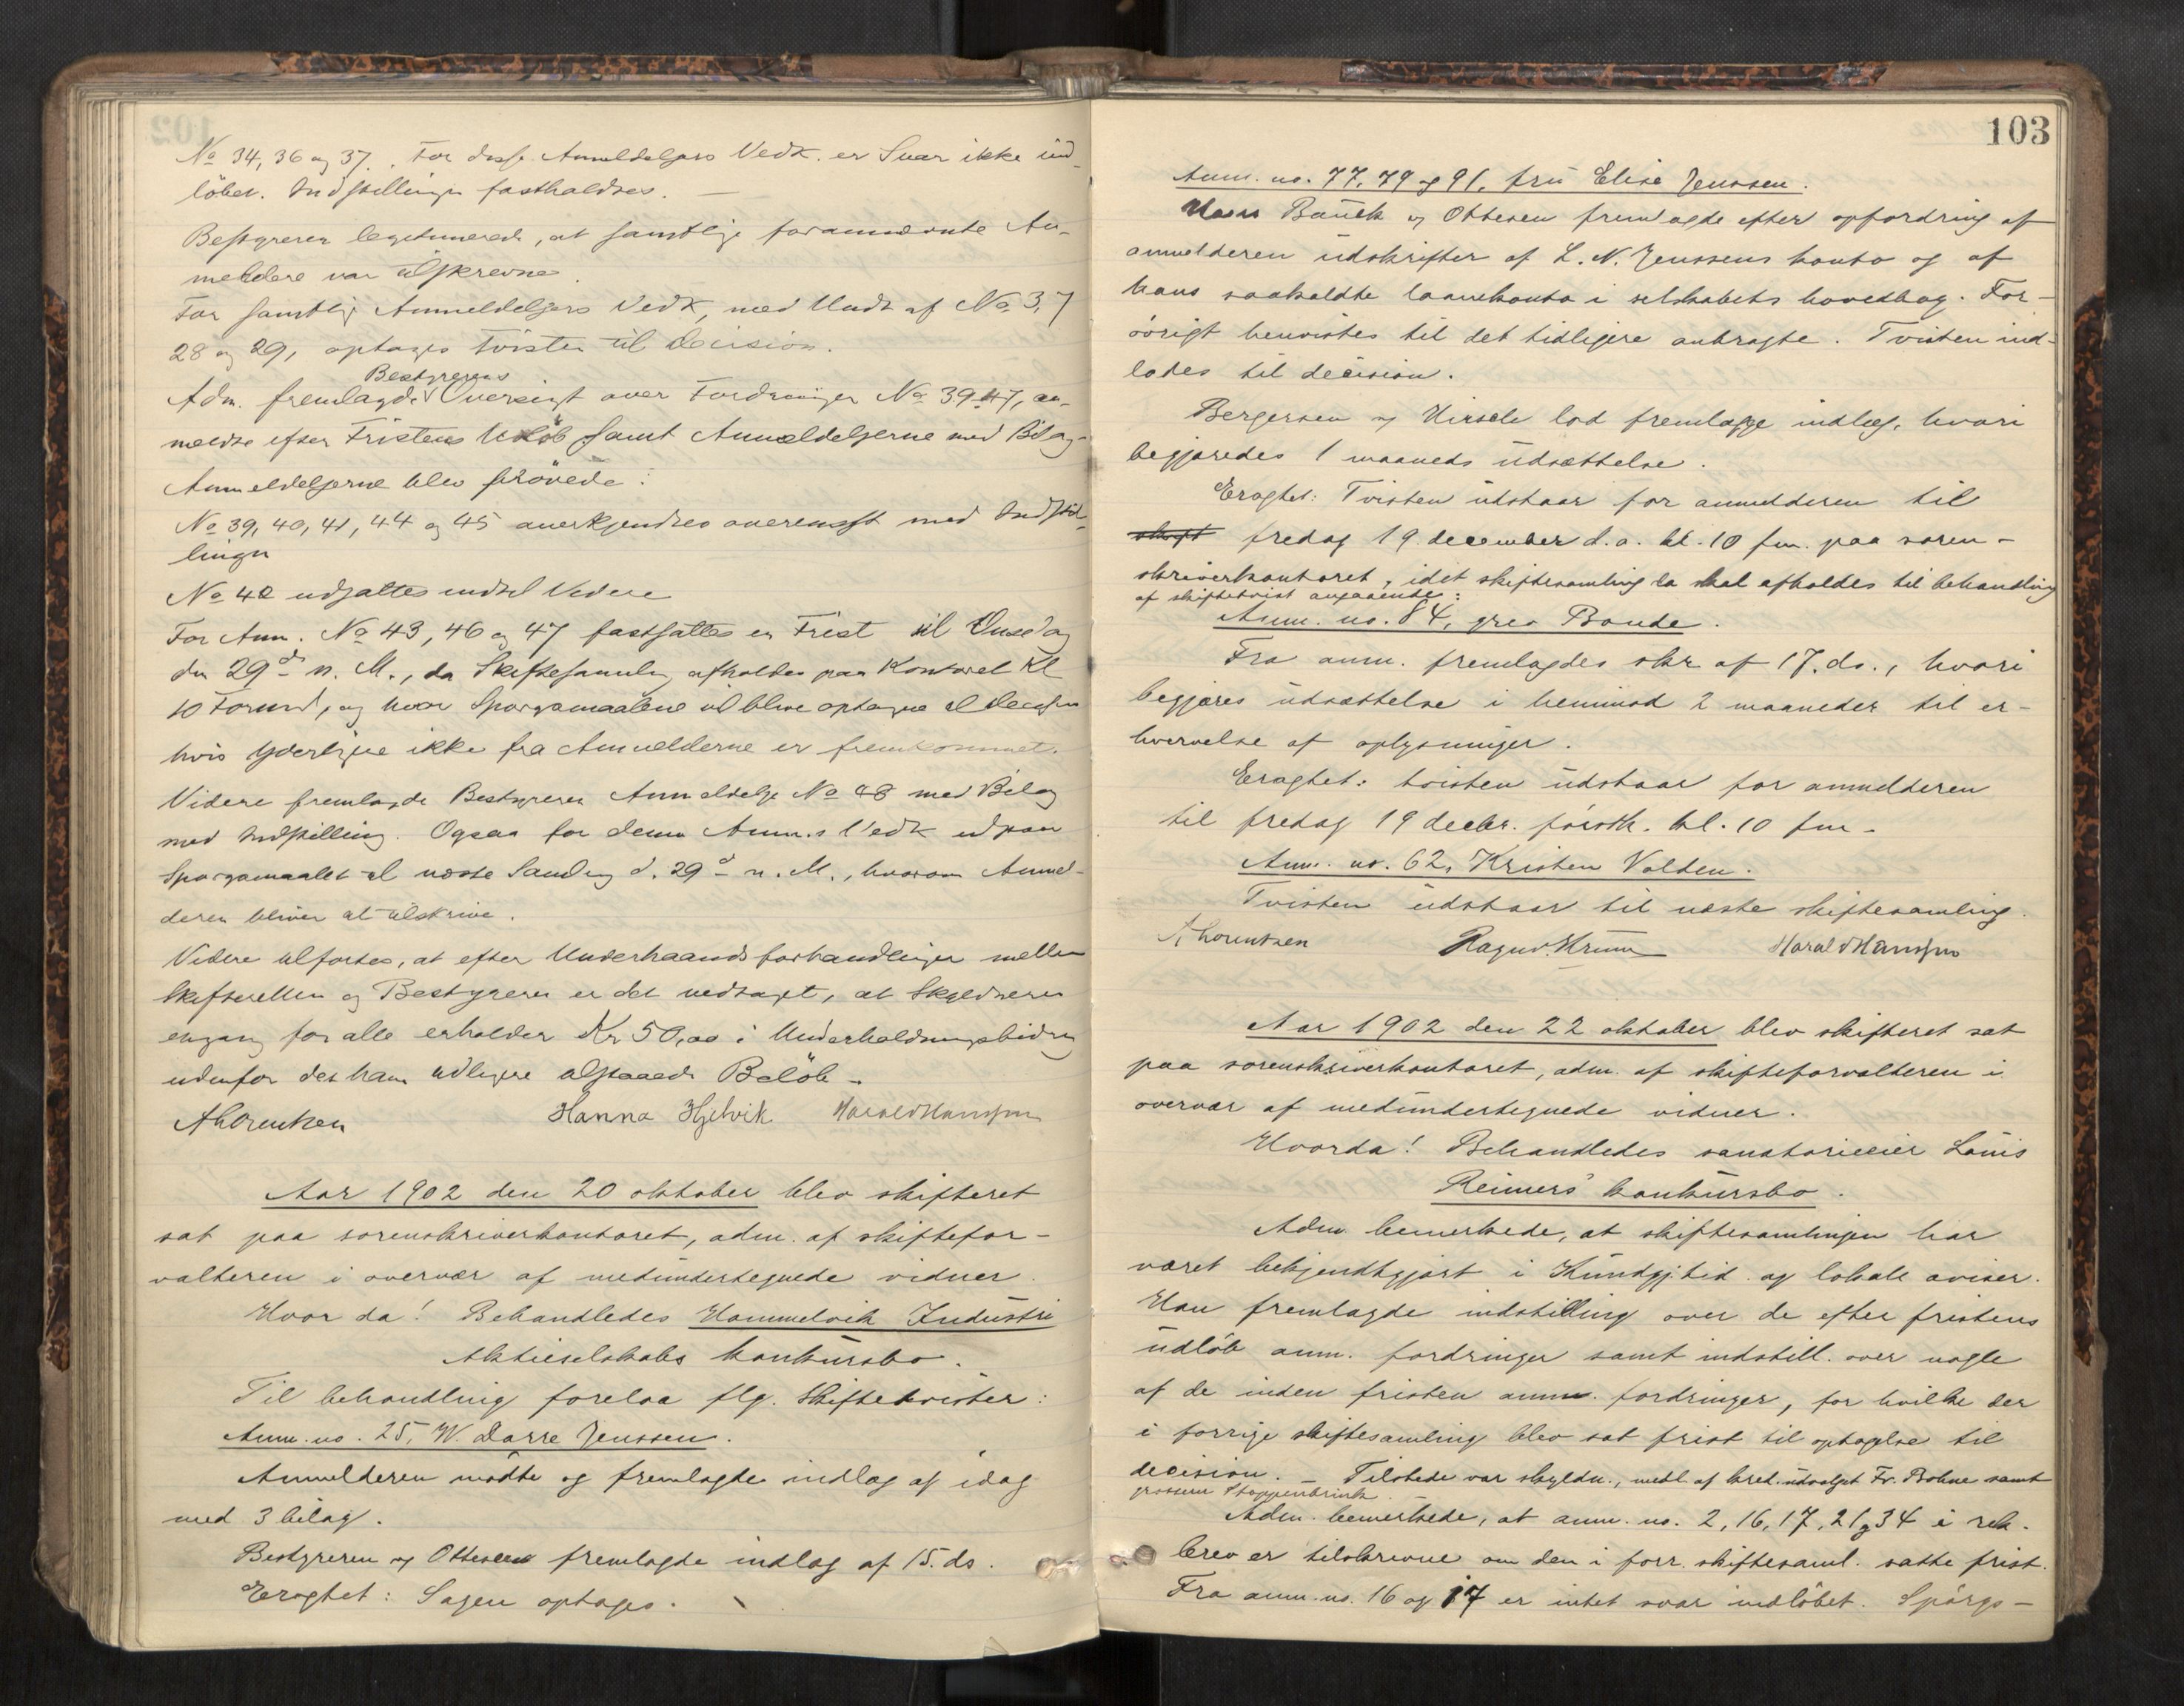 No 34, 36 og 37. For disse Anmeldelsers Vedk. er Svar ikke ind-
löbet. Indstillingen fastholdtes. —
Bestyreren legitimerede, at samtlige forannævnte An-
meldere var tilskrevne.
For samtlige Anmeldelsers Vedk, med Undt af No 3, 7
28 og 29, optages Tvisten til Decision.
Bestyrerens
Adm. fremlagde Oversigt over Fordringer No 39-47, an-
meldte efter Fristens Udlöb samt Anmeldelserne med Bilag-
Anmeldelserne blev prövede:
No 39, 40, 41, 44 og 45 anerkjendtes overensst med Indstil-
lingen
No 42 udsattes indtil Videre
For Anm. No 43, 46 og 47 fastsattes en Frist til Onsdag
den 29de n. M., da Skiftesamling afholdes paa Kontoret Kl
10 Formd, og hvor Spørgsmaalene vil blive optagne til Decision
hvis Yderligere ikke fra Anmelderne er fremkommet.
Videre fremlagde Bestyreren Anmeldelse No 48 med Bilag
med Indstilling. Ogsaa for denne Anm.s Vedk udstaar
Spørgsmaalet til næste Samling d. 29de n. M., hvorom Anmel-
deren bliver at tilskrive.
Videre tilførtes, at efter Underhaandsforhandlinger mellem
Skifteretten og Bestyreren er det vedtaget, at Skyldneren
engang for alle erholder Kr 50,00 i Underholdningsbidrag
udenfor det ham tidligere tilstaaede Belöb.
A Lorentzen Hanna Hjelvik Harald Hansen
Aar 1902 den 20 oktober blev skifteret
sat paa sorenskriverkontoret, adm. af skiftefor-
valteren i overvær af medundertegnede vidner.
Hvor da! Behandledes Hommelvik Industri
Aktieselskabs konkursbo.
Til behandling forelaa flg. Skiftetvister:
Anm. no. 25, W. Darre Jenssen.
Anmelderen mødte og fremlagde indlæg af idag
med 3 bilag.
Bestyreren og Ottesen fremlagde indlæg af 15. ds.
Eragtet: Sagen optages.
103
Anm. no. 77, 79 og 91, fru Elise Jenssen.
Bauck og Ottesen fremlagde efter opfordring af
anmelderen udskrifter af L. N. Jenssens konto og af
hans saakaldte laanekonto i selskabets hovedbog. For-
övrigt henvistes til det tidligere anbragte. Tvisten ind-
lodes til decision.
Bergersen og Hirsch lod fremlægge indlæg, hvori
begjæredes 1 maaneds udsættelse.
Eragtet: Tvisten udstaar for anmelderen til
fredag 19. december d. a. kl. 10 fm. paa soren-
skriverkontoret, idet skiftesamling da skal afholdes til behandling
af skiftetvist angaaende:
Anm. no. 84, grev Bonde.
Fra anm. fremlagdes skr af 17. ds., hvori
begjæres udsættelse i henimod 2 maaneder til er-
hvervelse af oplysninger.
Eragtet: tvisten udstaar for anmelderen
til fredag 19 decbr. førstk. kl. 10 fm.
Anm. no. 62, Kristen Volden.
Tvisten udstaar til næste skiftesamling.
A Lorentzen Ragnv. Krum Harald Hansen
Aar 1902 den 22 oktober blev skifteret sat
paa sorenskriverkontoret, adm. af skifteforvalteren i
overvær af medundertegnede vidner.
Hvorda! Behandledes sanatorieeier Louis
Reimers' konkursbo.
Adm. bemerkede, at skiftesamlingen har
været bekjendtgjort i Kundgj.tid. og lokale aviser.
Han fremlagde indstilling over de efter fristens
udlöb anm. fordringer samt indstill. over nogle
af de inden fristen anm. fordringer, for hvilke der
i forrige skiftesamling blev sat frist til optagelse til
decision. — Tilstede var skyldn., medl. af kred.udvalget Fr. Bohne samt
grosserer Stoppenbrink.
Adm. bemerkede, at anm. no. 2, 16, 17, 21 og 34 i rek.
brev er tilskrevne om den i forr. skiftesaml. satte frist.
Fra anm. no. 16 og 17 er intet svar indlöbet. Spörgs-